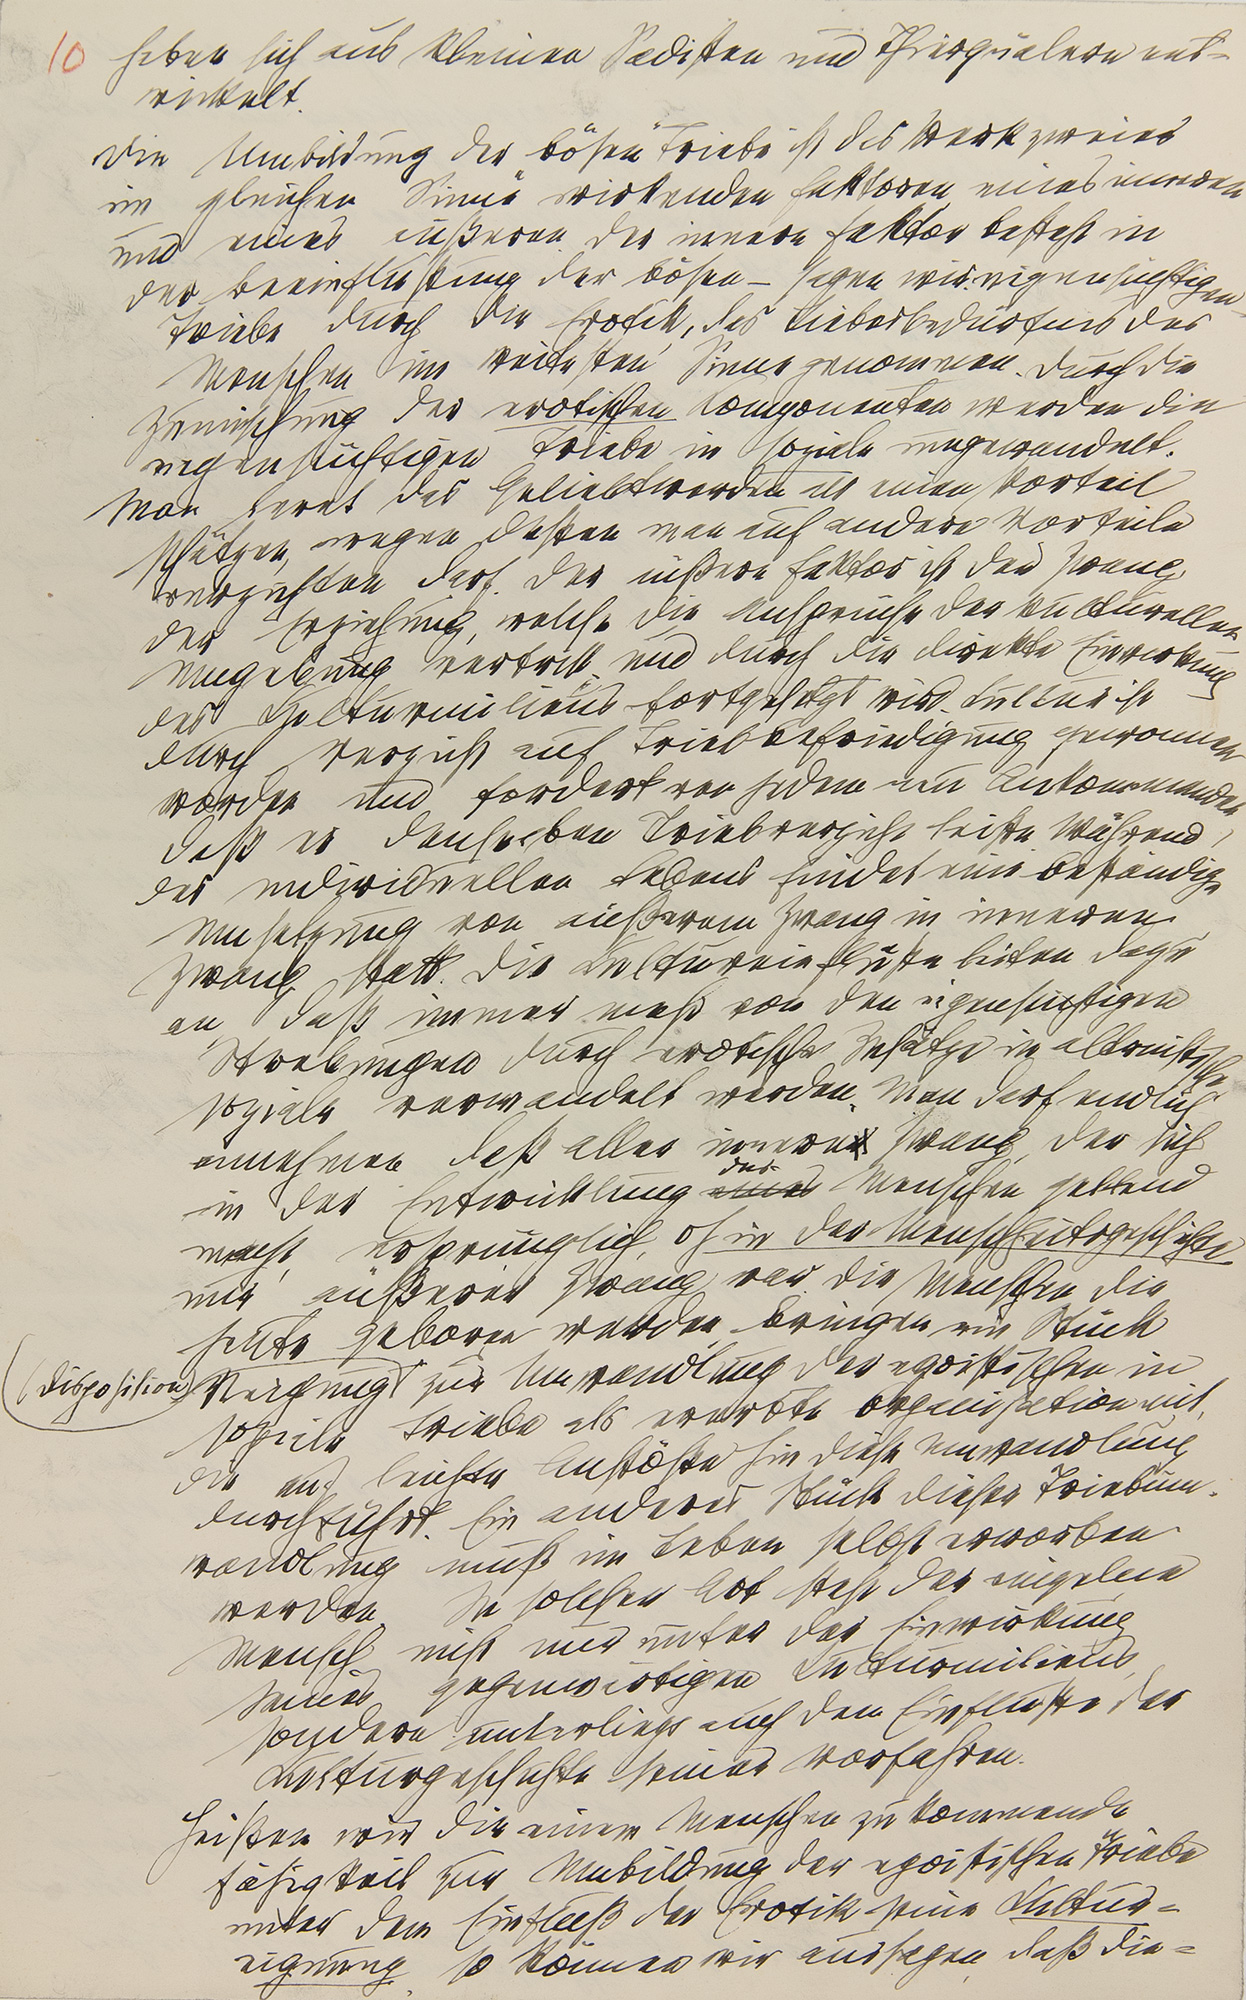 10 haben sich aus kleinen Sadisten und Thierquälern ent-
wickelt.
Die Umbildung der „bösen“ Triebe ist das Werk zweier
im gleichen Sinne wirkenden Faktoren, eines inneren
und eines äußeren. Der innere Faktor besteht in
der Beeinflussung der bösen – sagen wir: eigensüchtigen –
Triebe durch die Erotik, das Liebesbedürfnis des
Menschen im weitesten Sinne genommen. Durch die
Zumischung der erotischen Componenten werden die
eigensüchtigen Triebe in soziale umgewandelt.
Man lernt das Geliebtwerden als einen Vorteil
schätzen, wegen dessen man auf andere Vorteile
verzichten darf. Der äußere Faktor ist der Zwang
der Erziehung, welche die Ansprüche der kulturellen
Umgebung vertritt, und durch die direkte Einwirkung
des Kulturmilieus fortgesetzt wird. Kultur ist
durch Verzicht auf Triebbefriedigung gewonnen
worden und fordert von jedem neu Ankommenden,
daß er denselben Triebverzicht leiste. Während
des individuellen Lebens findet eine beständige
Umsetzung von äußerem Zwang in inneren
Zwang statt. Die Kultureinflüsse leiten dazu
an, daß immer mehr von den eigensüchtigen
Strebungen durch erotische Zusätze in altruistische,
soziale verwandelt werden. Man darf endlich
annehmen, daß aller innere Zwang, der sich
in der Entwicklung des Menschen geltend
macht, ursprünglich, dh in der Menschheitsgeschichte
nur äußerer Zwang war. Die Menschen, die
heute geboren werden, bringen ein Stück
(Disposition) Neigung zur Umwandlung der egoistischen in
soziale Triebe als ererbte Organisation mit,
die auf leichte Anstöße hin diese Umwandlung
durchführt. Ein anderes Stück dieser Triebum-
wandlung muß im Leben selbst erworben
werden. In solcher Art steht der einzelne
Mensch nicht nur unter der Einwirkung
seines gegenwärtigen Kulturmilieus,
sondern unterliegt auch dem Einflusse der
Kulturgeschichte seiner Vorfahren.
Heißen wir die einem Menschen zukommende
Fähigkeit zur Umbildung der egoistischen Triebe
unter dem Einfluß der Erotik seine Kultur-
eignung, so können wir aussagen, daß die-